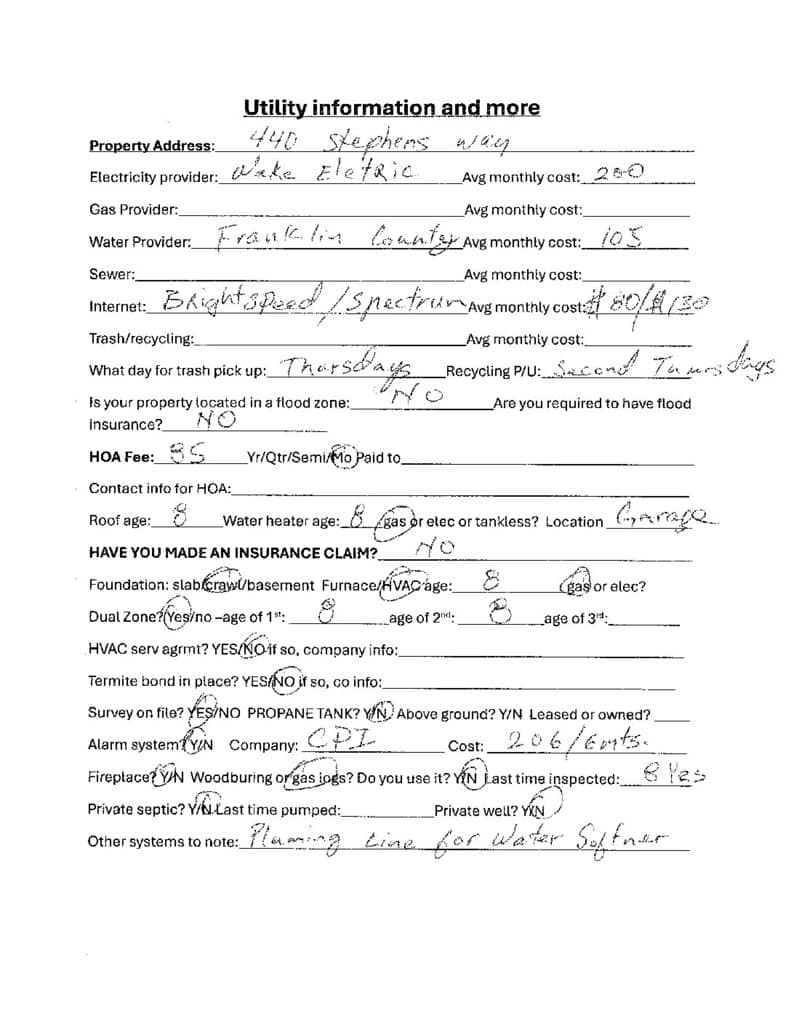 Utility information and more
Property Address: 440 Stephens Way
Electricity provider: Wake Eletric Avg monthly cost: 200
Gas Provider: Avg monthly cost:
Water Provider: Franklin County Avg monthly cost: 105
Sewer: Avg monthly cost:
Internet: BRightspeed/Spectrum Avg monthly cost: $80/$130
Trash/recycling: Avg monthly cost:
What day for trash pick up: Thorsdays Recycling P/U: Second Tuursdays
Is your property located in a flood zone: NO Are you required to have flood
insurance? NO
HOA Fee: 85 Yr/Qtr/Semi/Mo Paid to
Contact info for HOA:
Roof age: 8 Water heater age: 8 /gas or elec or tankless? Location Garage
HAVE YOU MADE AN INSURANCE CLAIM? NO
Foundation: slab/crawl/basement Furnace/HVAC age: 8 (gas or elec?
Dual Zone? Yes/no –age of 1st: 8 age of 2nd: 8 age of 3rd:
HVAC serv agrmt? YES/NO if so, company info:
Termite bond in place? YES/NO if so, co info:
Survey on file? YES/NO PROPANE TANK? Y/N Above ground? Y/N Leased or owned?
Alarm system? Y/N Company: CPI Cost: 206/6mts.
Fireplace? Y/N Woodburing or gas logs? Do you use it? Y/N Last time inspected: 8 Yes
Private septic? Y/N Last time pumped: Private well? Y/N
Other systems to note: Pluming Line for Water Softner